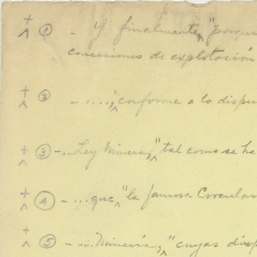 + ^ ① - Y finalmente, ^ "porque
concesiones de explotación
+ ^ ② - ...., ^ "conforme a lo dispu
+ ^ ③ - ... Ley Minera, ^ " tal como se ha
+ ^ ④ - ... que, ^ " la famosa Circular
+ ^ ⑤ - ... Minería, ^ " cuyas disp